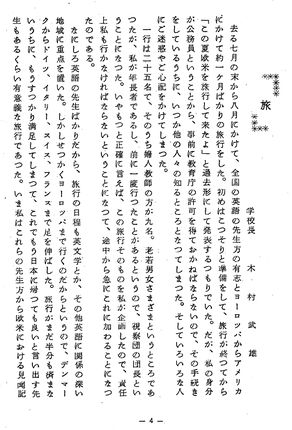 旅
学校長 木村武雄
去る七月の末から八月にかけて、全国の英語の先生方の有志とヨーロッパからアメリカ
にかけて約一ケ月ばかりの旅行をした。初めはこつそりと準備をして、旅行が終つてから
「この夏欧米を旅行して来たよ」と過去形にして発表するつもりでいた。だが、私の身分
が公務員ということから、事前に教育庁の許可を得ておかねばならないので、その手続き
をしているうちに、いつか他の人々の知るところとなつてしまつた。そしていろいろな人
にご迷惑やご心配をかけてしまつた。
一行は二十五名で、そのうち婦人教師の方が九名。老若男女さまざまというところであ
つたが、私が年長者であるし、前に一度行つたことがあるというので、視察団の団長とい
うことになつた。いやもつと正確に言えば、この旅行そのものを私が企画したので、責任
上私も行かなければならないということになつて、途中から急にこれに加わることになつ
たのである。
なにしろ英語の先生ばかりだから、旅行の日程も英文学とか、その他英語に関係の深い
地域に重点を置いた。しかしせつかくヨーロッパまで行くのだからというので、デンマー
クからドイツ、イタリー、スイス、フランスまで足を伸ばした。旅行がまだ半分も済まな
いうちに、もうすつかり満足してしまつて、これでもう日本に帰つても良いと言い出す先
生もあるくらい有意義な旅行であつた。いま私はこれらの先生方から欧米における見聞記
— 4 —